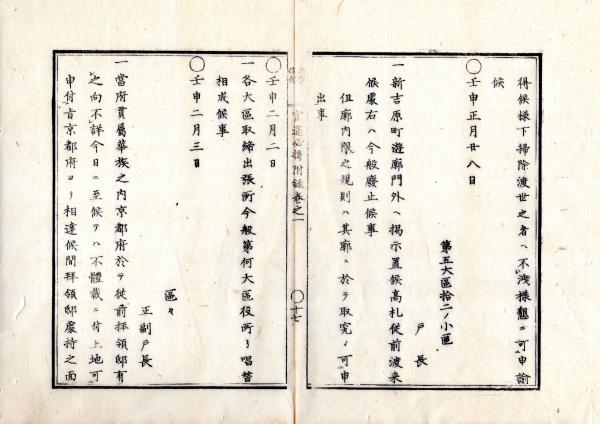 得候様下掃除渡世之者ヘ不洩様懇ニ可申諭
候
〇壬申正月廿八日
第五大區拾二ノ小區
戸長
一新吉原町遊廓門外ヘ掲示置候高札従前渡来
候處右ハ今般廢止候事
但廓内限之規則ハ其廓ニ於テ取究メ可申
出事
官途必携附録巻之一
〇十七
〇壬申二月二日
一各大區取締出張所今般第何大區役所ト唱替
相成候事
〇壬申二月三日
區々
正副戸長
一當府貫屬華族之内京都府於テ従前拝領邸有
之向不詳今日ニ至候テハ不體裁ニ付上地可
申付旨京都府ヨリ相達候間拝領邸慶持之面